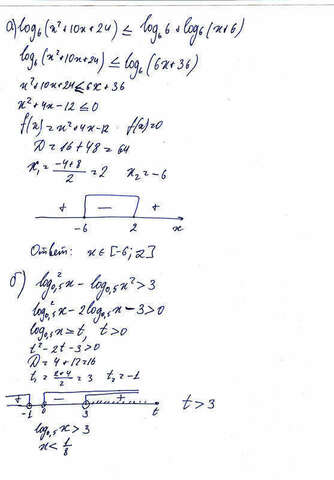 а) log₆(x²+10x+24) ≤ log₆6 + log₆(x+6)
log₆(x²+10x+24) ≤ log₆(6x+36)
x²+10x+24 ≤ 6x+36
x²+4x-12 ≤ 0
f(x) = x²+4x-12 f(x)=0
D = 16+48 = 64
x₁ = (-4+8)/2 = 2 x₂ = -6
+ − +
-6 2 x
Ответ: x∈[-6;2]
б) log²₀,₅x - log₀,₅x² > 3
log²₀,₅x - 2log₀,₅x - 3 > 0
log₀,₅x = t, t > 0
t² - 2t - 3 > 0
D = 4+12 = 16
t₁ = (2+4)/2 = 3 t₂ = -1
+ − +
-1 0 3 t t > 3
log₀,₅x > 3
x < 1/8